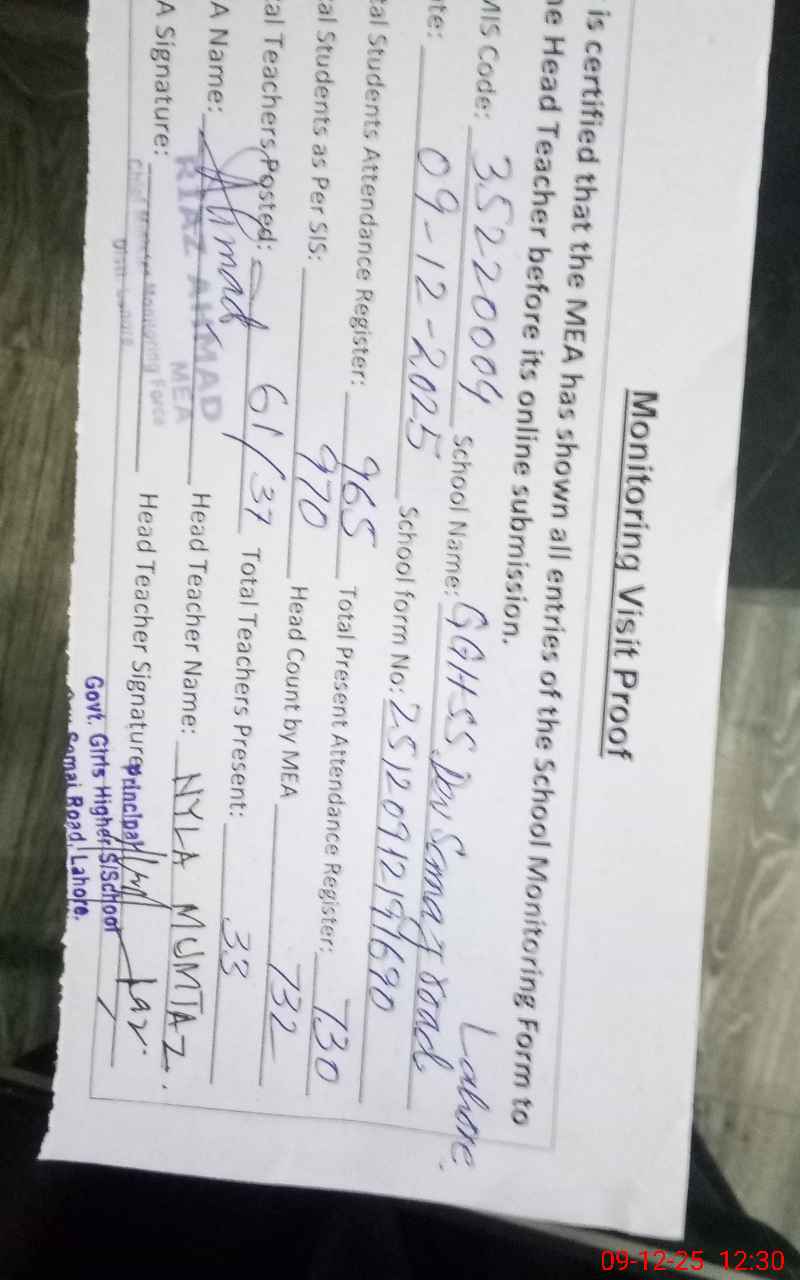 Monitoring Visit Proof
is certified that the MEA has shown all entries of the School Monitoring Form to
he Head Teacher before its online submission.
MIS Code: 35220009 School Name: GGHSS Dev Samaj road Lahore.
te: 09-12-2025 School form No: 251209121971690
tal Students Attendance Register: 965 Total Present Attendance Register: 730
al Students as Per SIS: 970 Head Count by MEA 732
al Teachers Posted: 61/37 Total Teachers Present: 33
A Name: Ahmad Head Teacher Name: NYLA MUMTAZ.
RIAZ AHMAD
MEA
A Signature: Head Teacher Signature
Monitoring Force
Principal
Govt. Girls Higher S/School
Samaj Road, Lahore.
09-12-25 12:30